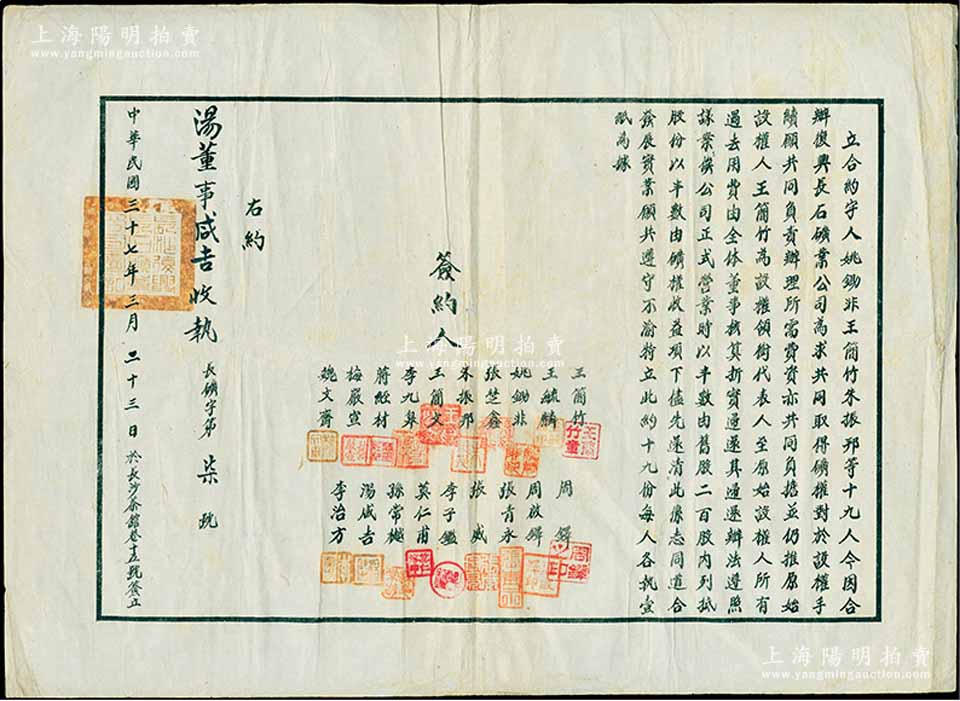 立合約字人姚鋤非王簡竹朱振邦等十九人今因合
辦復興長石礦業公司為求共同取得礦權對於設權手
續願共同負責辦理所需費資亦共同負擔並仍推原始
設權人王簡竹為設權領銜代表人至原始設權人所有
過去用費由全体董事核算折實過還其過還辦法遵照
議案俟公司正式營業時以半數由舊股二百股內列抵
股份以半數由礦權收益項下儘先還清此係志同道合
發展實業願共遵守不渝特立此約十九份每人各執壹
紙為據
簽約人
王簡竹
王毓麟
姚鋤非
張芝鑫
朱振邦
王簡文
李九皋
蔣經材
梅嚴宣
魏文齋
周鐸
周啟鐸
張青永
張威
李子鑑
莫仁甫
孫常樾
湯咸吉
李治方
右約
湯董事咸吉收執
長礦字第柒號
中華民國三十七年三月二十三日於長沙茶館巷十五號簽立
上海陽明拍賣
www.yangmingauction.com
上海陽明拍賣
www.yangmingauction.com
上海陽明拍賣
www.yangmingauction.com